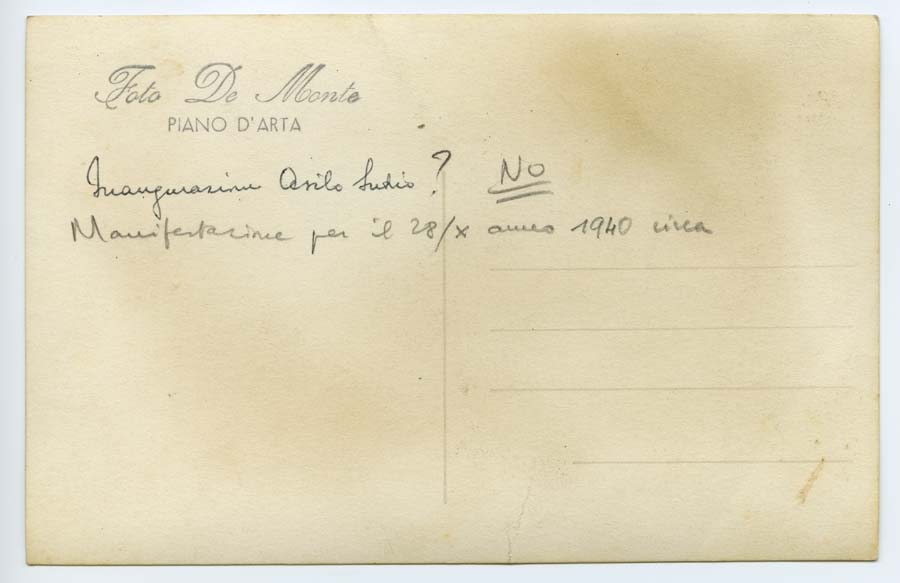 Foto De Monte
PIANO D'ARTA
Inaugurazione Asilo Sudio? NO
Manifestazione per il 28/X anno 1940 circa